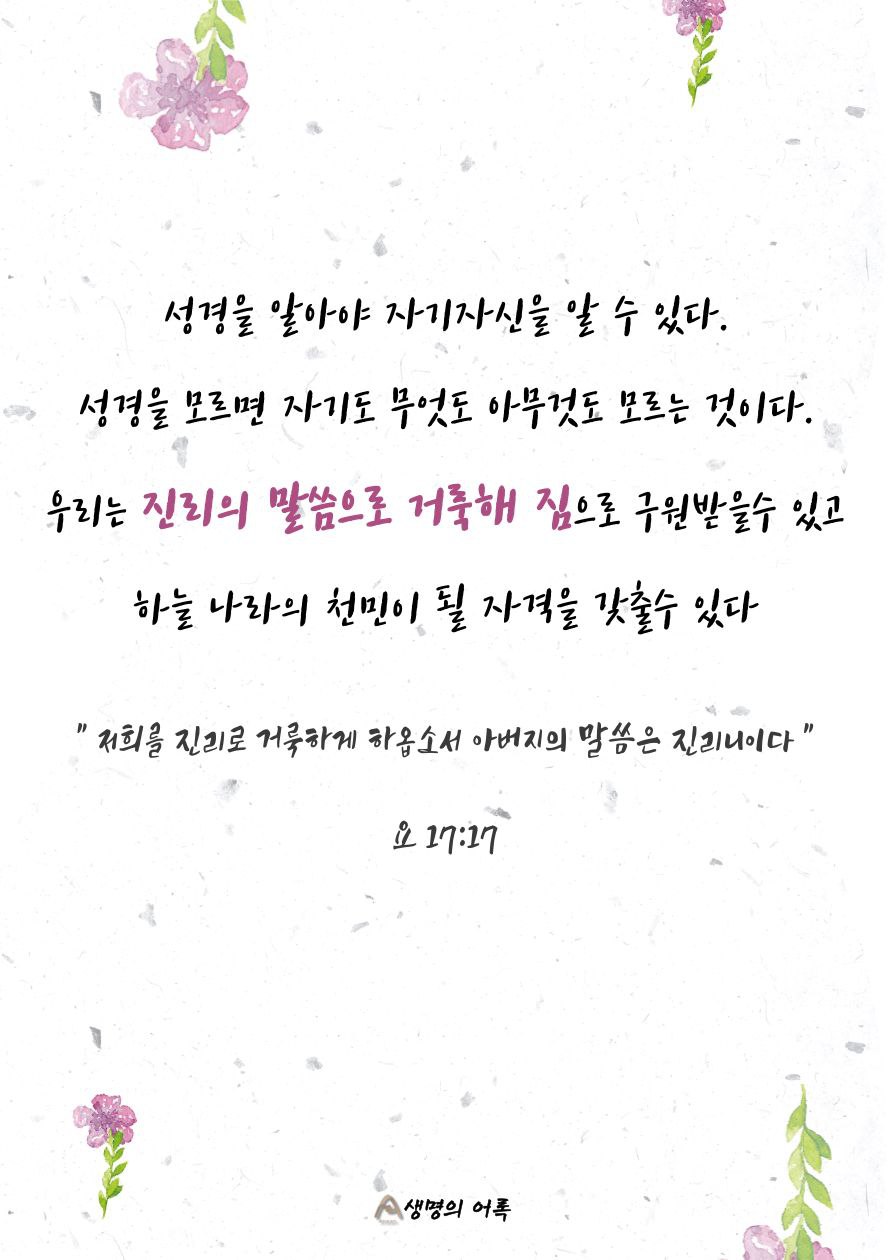 성경을 알아야 자기자신을 알 수 있다.
성경을 모르면 자기도 무엇도 아무것도 모르는 것이다.
우리는 진리의 말씀으로 거룩해 짐으로 구원받을수 있고
하늘 나라의 천민이 될 자격을 갖출수 있다
" 저희를 진리로 거룩하게 하옵소서 아버지의 말씀은 진리니이다 "
요 17:17
생명의 어록